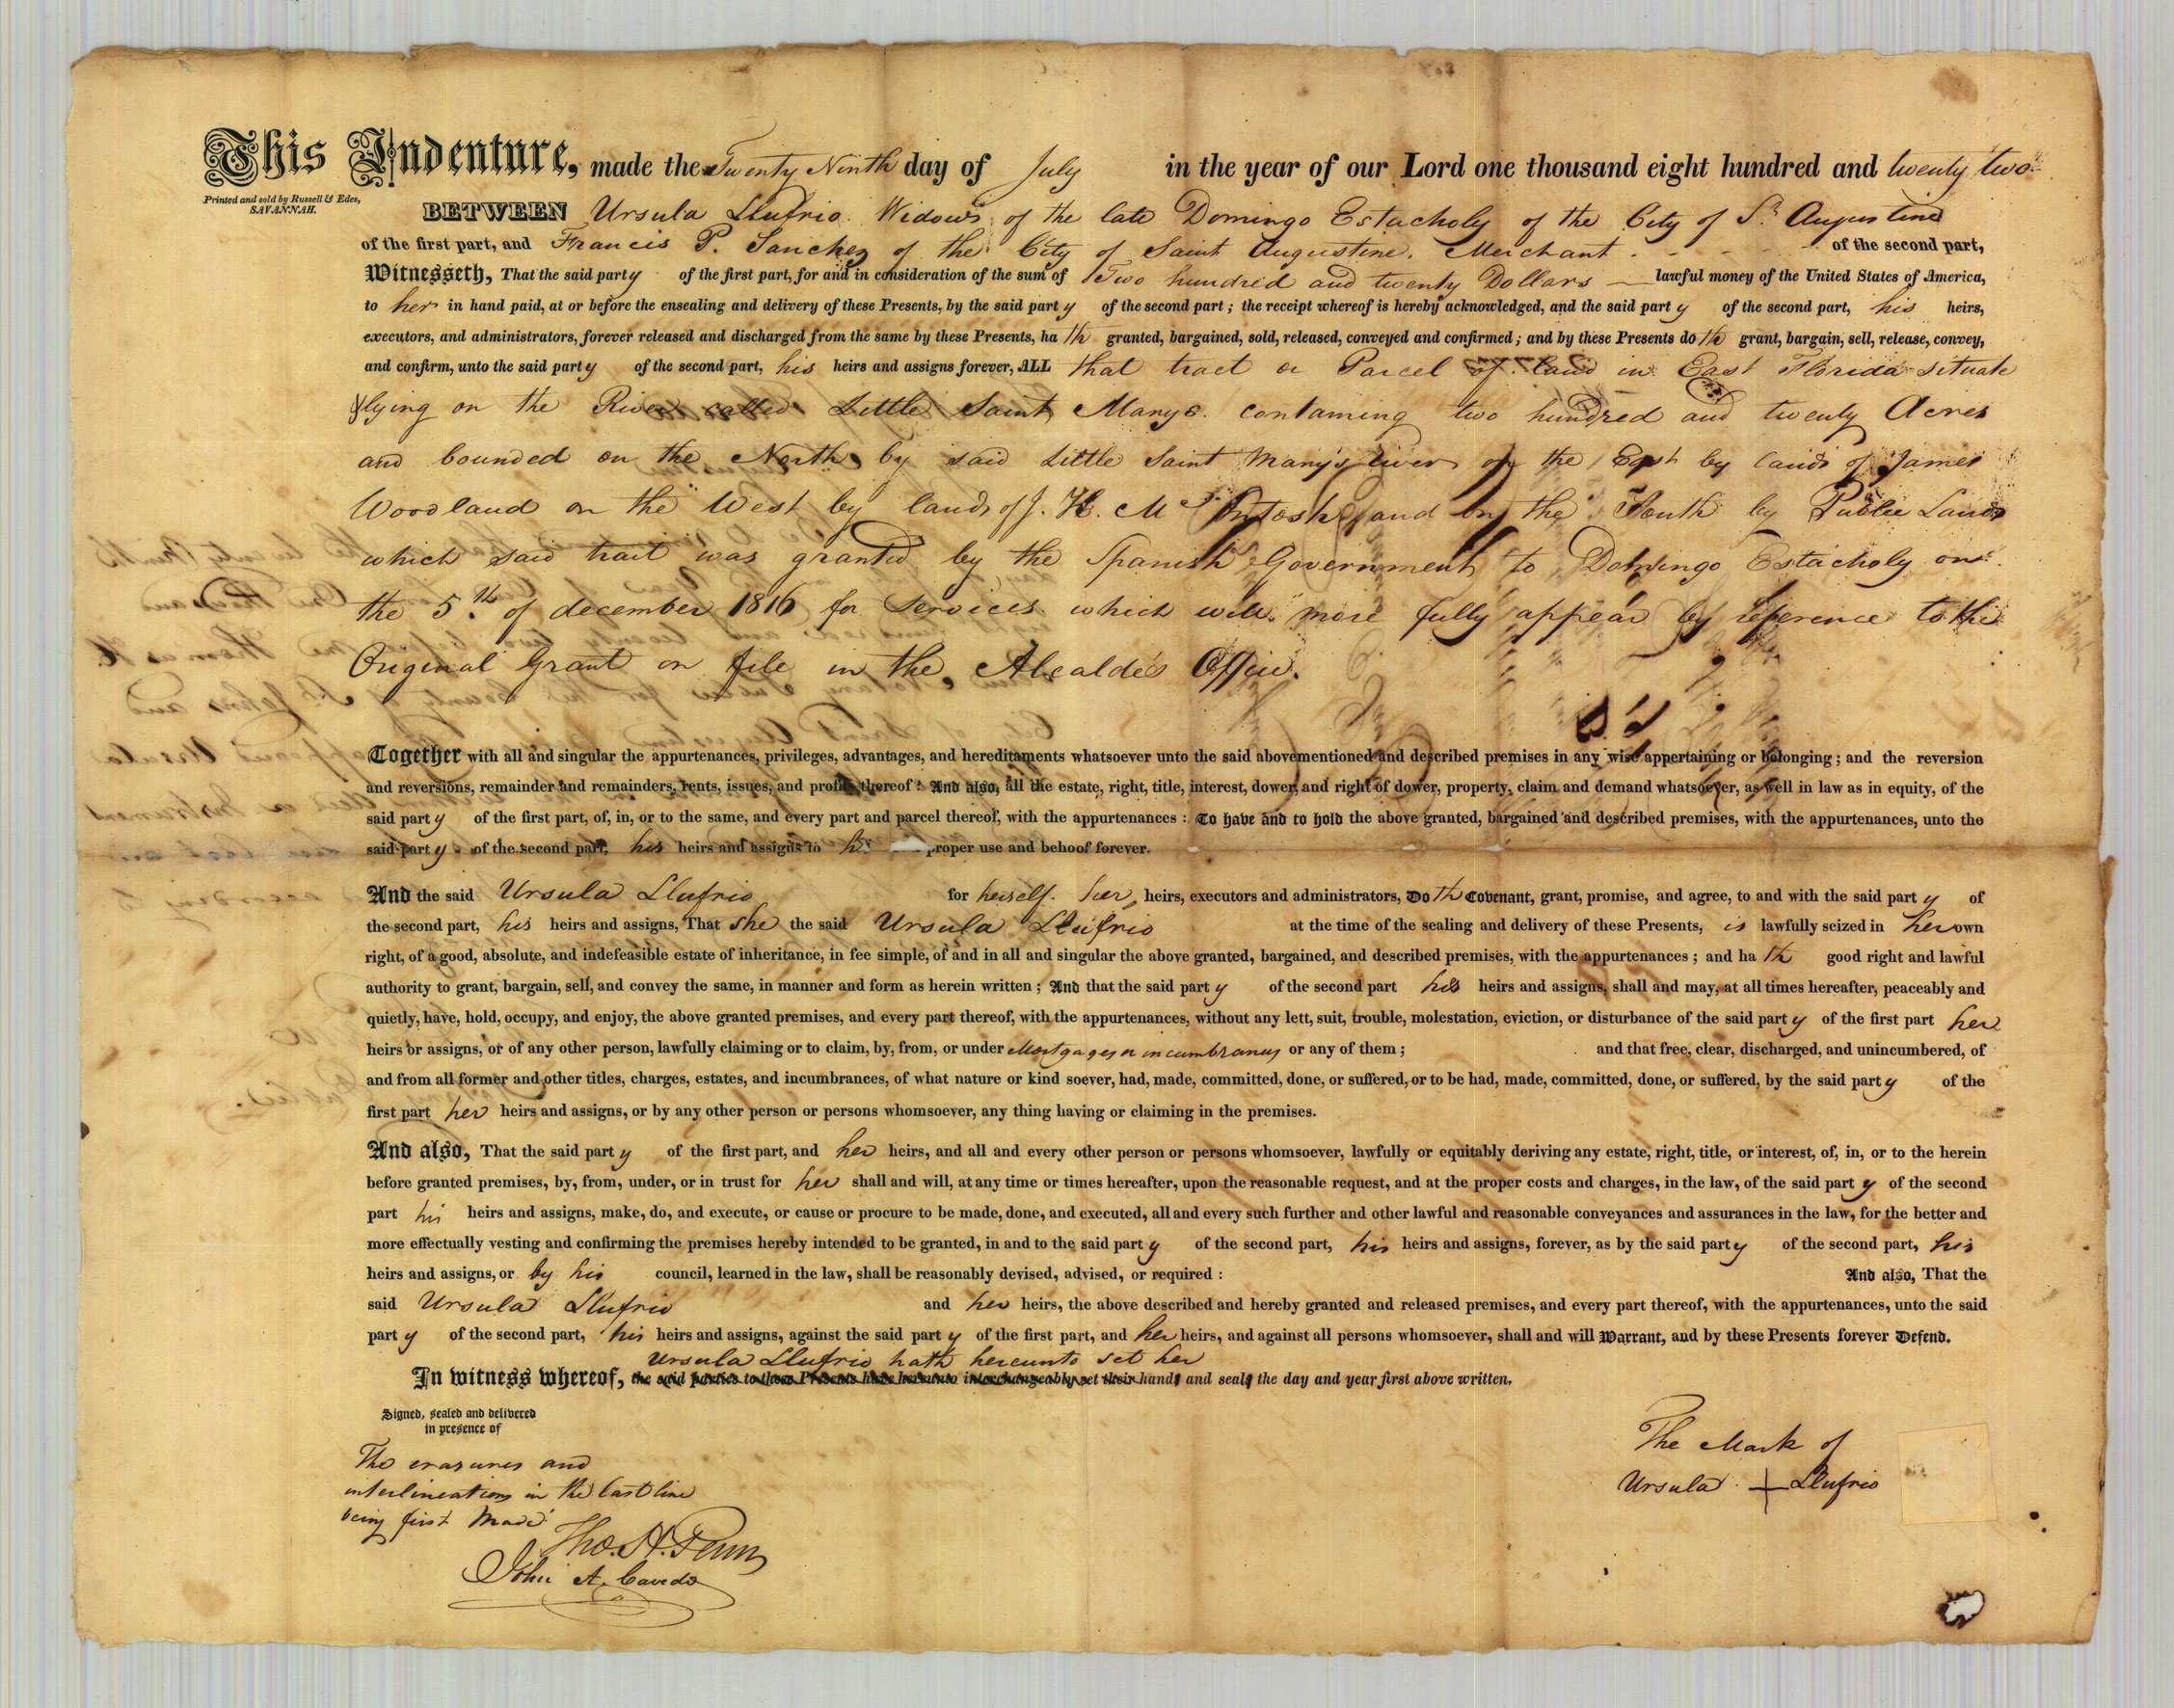 This Indenture, made the Twenty Ninth day of July in the year of our Lord one thousand eight hundred and twenty two
Printed and sold by Russell & Edes,
SAVANNAH.
BETWEEN Ursula Llufrio Widow of the late Domingo Estacholy of the City of St Augustine
of the first part, and Francis P. Sanchez of the City of Saint Augustine. Merchant of the second part,
Witnesseth, That the said party of the first part, for and in consideration of the sum of Two hundred and twenty Dollars lawful money of the United States of America,
to her in hand paid, at or before the ensealing and delivery of these Presents, by the said party of the second part; the receipt whereof is hereby acknowledged, and the said party of the second part, his heirs,
executors, and administrators, forever released and discharged from the same by these Presents, hath granted, bargained, sold, released, conveyed and confirmed; and by these Presents doth grant, bargain, sell, release, convey,
and confirm, unto the said party of the second part, his heirs and assigns forever, ALL that tract or Parcel of land in East Florida situate
lying on the River called Little Saint Marys. containing two hundred and twenty Acres
and bounded on the North by said Little Saint Mary's river on the East by lands of James
Woodland on the West by lands of J. H. McIntosh and on the South by Public Lands
which said trait was granted by the Spanish Government to Domingo Estacholy on
the 5th of december 1816 for Services which will more fully appear by reference to the
Original Grant on file in the Alcalde's Office.
Together with all and singular the appurtenances, privileges, advantages, and hereditaments whatsoever unto the said abovementioned and described premises in any wise appertaining or belonging; and the reversion
and reversions, remainder and remainders, rents, issues, and profits thereof: And also, all the estate, right, title, interest, dower, and right of dower, property, claim and demand whatsoever, as well in law as in equity, of the
said party of the first part, of, in, or to the same, and every part and parcel thereof, with the appurtenances: To have and to hold the above granted, bargained and described premises, with the appurtenances, unto the
said party of the second part, his heirs and assigns to his proper use and behoof forever.
And the said Ursula Llufrio for herself. her heirs, executors and administrators, Doth Covenant, grant, promise, and agree, to and with the said party of
the second part, his heirs and assigns, That she the said Ursula Llufrio at the time of the sealing and delivery of these Presents, is lawfully seized in her own
right, of a good, absolute, and indefeasible estate of inheritance, in fee simple, of and in all and singular the above granted, bargained, and described premises, with the appurtenances; and hath good right and lawful
authority to grant, bargain, sell, and convey the same, in manner and form as herein written; And that the said party of the second part his heirs and assigns, shall and may, at all times hereafter, peaceably and
quietly, have, hold, occupy, and enjoy, the above granted premises, and every part thereof, with the appurtenances, without any lett, suit, trouble, molestation, eviction, or disturbance of the said party of the first part her
heirs or assigns, or of any other person, lawfully claiming or to claim, by, from, or under Mortgages or incumbrances or any of them; and that free, clear, discharged, and unincumbered, of
and from all former and other titles, charges, estates, and incumbrances, of what nature or kind soever, had, made, committed, done, or suffered, or to be had, made, committed, done, or suffered, by the said party of the
first part her heirs and assigns, or by any other person or persons whomsoever, any thing having or claiming in the premises.
And also, That the said party of the first part, and her heirs, and all and every other person or persons whomsoever, lawfully or equitably deriving any estate, right, title, or interest, of, in, or to the herein
before granted premises, by, from, under, or in trust for her shall and will, at any time or times hereafter, upon the reasonable request, and at the proper costs and charges, in the law, of the said party of the second
part his heirs and assigns, make, do, and execute, or cause or procure to be made, done, and executed, all and every such further and other lawful and reasonable conveyances and assurances in the law, for the better and
more effectually vesting and confirming the premises hereby intended to be granted, in and to the said party of the second part, his heirs and assigns, forever, as by the said party of the second part, his
heirs and assigns, or by his council, learned in the law, shall be reasonably devised, advised, or required: And also, That the
said Ursula Llufrio and her heirs, the above described and hereby granted and released premises, and every part thereof, with the appurtenances, unto the said
party of the second part, his heirs and assigns, against the said party of the first part, and her heirs, and against all persons whomsoever, shall and will Warrant, and by these Presents forever Defend.
Ursula Llufrio hath hereunto set her
In witness whereof, the said parties to these Presents have hereunto interchangeably set their hands and seals the day and year first above written.
Signed, sealed and delivered
in presence of
The erasures and
interlineations in the last line
being first Made
Tho. H. Penn
John A. Cavedo
The Mark of
Ursula + Llufrio